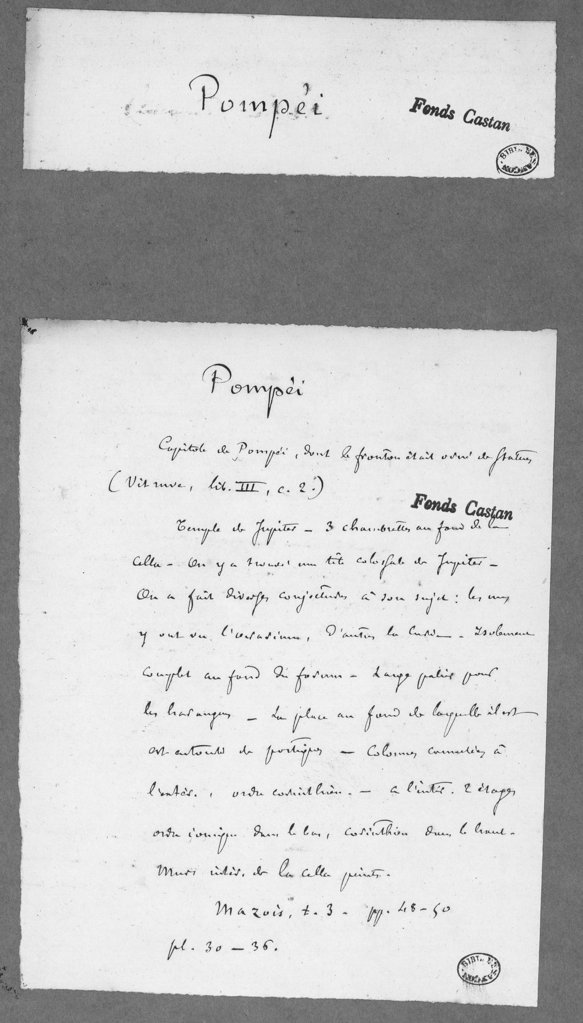 Pompéi
Fonds Castan
Pompéi
Capitole de Pompéi, dont le fronton était orné de statues
(Vitruve, lib. III, c. 2.)
Fonds Castan
Temple de Jupiter - 3 chambrettes au fond de la
cella - On y a trouvé une tête colossale de Jupiter -
On a fait diverses conjectures à son sujet : les uns
y ont vu l'aerarium, d'autres la Curie - Isolement
complet au fond du forum - Large palier pour
les harangues - La place au fond de laquelle il est
est entourée de portiques - Colonnes cannelées à
l'extér., ordre corinthien. - à l'intér. 2 étages
ordre ionique dans le bas, corinthien dans le haut.
Murs intér. de la cella peints.
Mazois, t. 3. pp. 48-50
pl. 30-36.